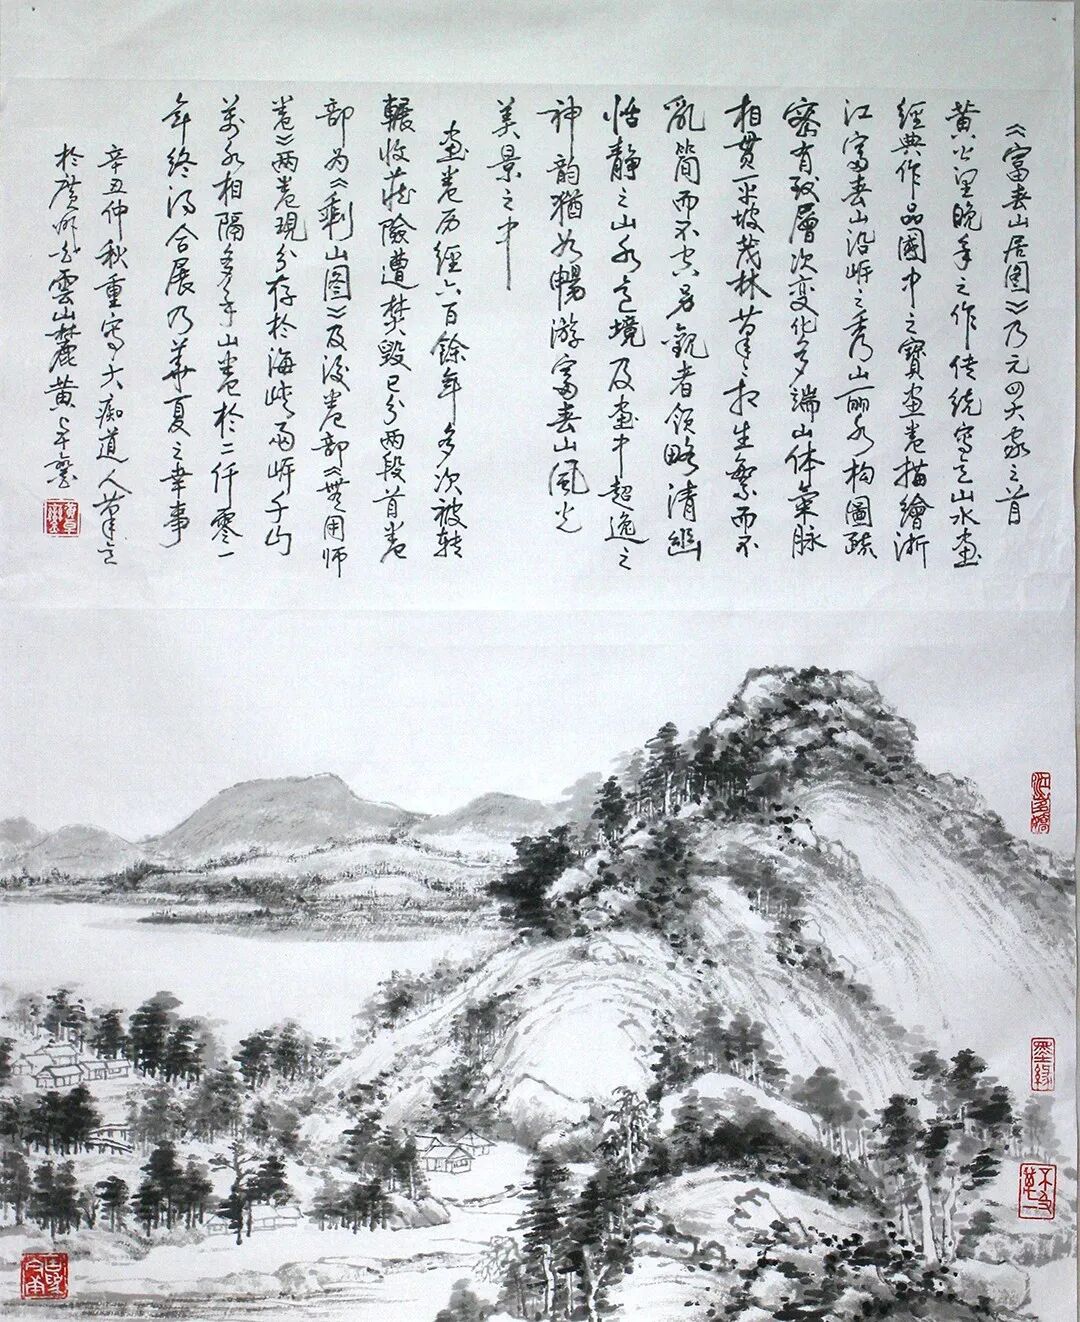 《富春山居图》乃元四大家之首
黄公望晚年之作传统写意山水画
經典作品國中之寶画卷描繪浙
江富春山沿岍之秀山丽水构圖疏
密有致層次变化多端山体氣脉
相贯平坡茂林笔笔相生繁而不
亂简而不空另觀者领略清幽
恬静之山水意境及画中超逸之
神韵猶如暢游富春山风光
美景之中
画卷历經六百餘年多次被转
輾收藏險遭焚毁已分两段首卷
部为《剩山图》及後卷部《無用师
卷》两卷現分存於海峡两岍千山
萬水相隔多年山卷於二仟零一
年终得合展乃華夏之幸事
辛丑仲秋重写大痴道人笔意
於廣州白雲山麓黄
墨缘